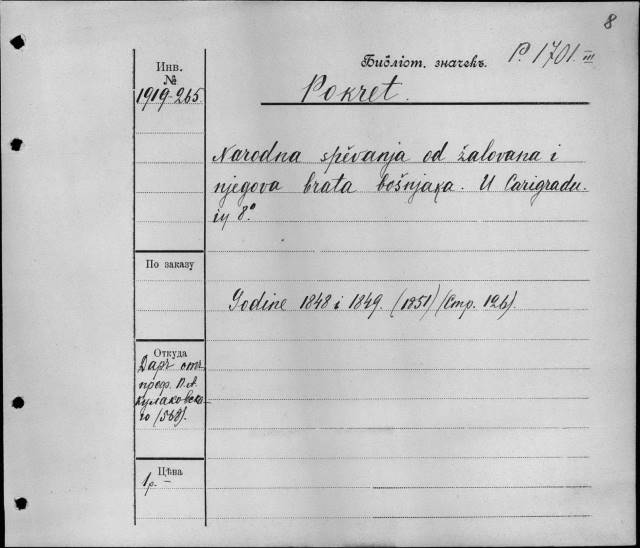 8
Инв.
№
1919-265.
Библіот. значекъ. P. 1701. III
Pokret.
Narodna spěvanja od žalovana i
njegova brata bošnjaka. U Carigradu.
in 8°
По заказу
Godine 1848 i 1849. (1851) (Стр. 126).
Откуда
Даръ
проф. П. А.
Кулаковска-
го (568).
Цѣна
1 р. –